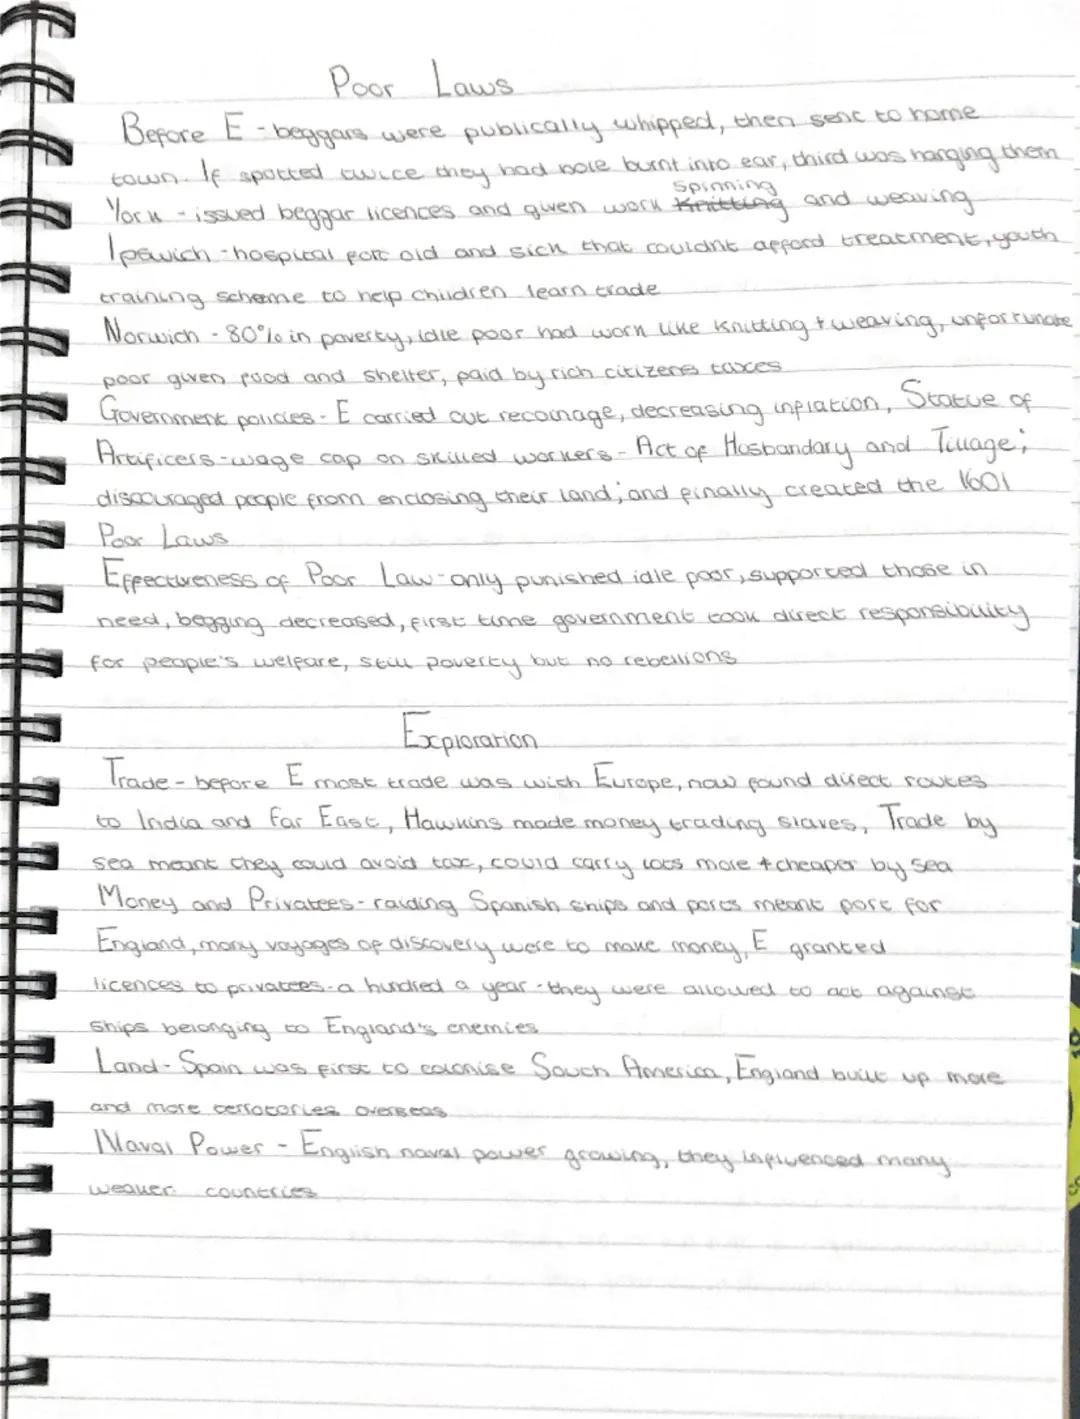 Poor Laws
Before E - beggars were publically whipped, then sent to home
town. If spotted twice they had hole burnt into ear, third was hanging them
Spinning
York - issued beggar licences and given work Knitting and weaving
Ipswich - hospital for old and sick that couldnt afford treatment, youth
training scheme to help children learn trade
Norwich - 80% in poverty, idle poor had work like knitting + weaving, unfortunate
poor given food and shelter, paid by rich citizens taxes
Government policies - E carried out recoinage, decreasing inflation, Statue of
Artificers - wage cap on skilled workers - Act of Hosbandary and Tillage;
discouraged people from enclosing their land; and finally created the 1601
Poor Laws
Effectiveness of Poor Law - only punished idle poor, supported those in
need, begging decreased, first time government took direct responsibility
for people's welfare, still poverty but no rebellions
Exploration
Trade - before E most trade was with Europe, now found direct routes
to India and Far East, Hawkins made money trading slaves, Trade by
sea meant they could avoid tax, could carry lots more + cheaper by sea
Money and Privatees - raiding Spanish ships and ports meant port for
England, many voyages of discovery were to make money, E granted
licences to privatees - a hundred a year - they were allowed to act against
ships belonging to England's enemies
Land - Spain was first to colonise South America, England built up more
and more terrotories overseas
Naval Power - English naval power growing, they influenced many
weaker countries